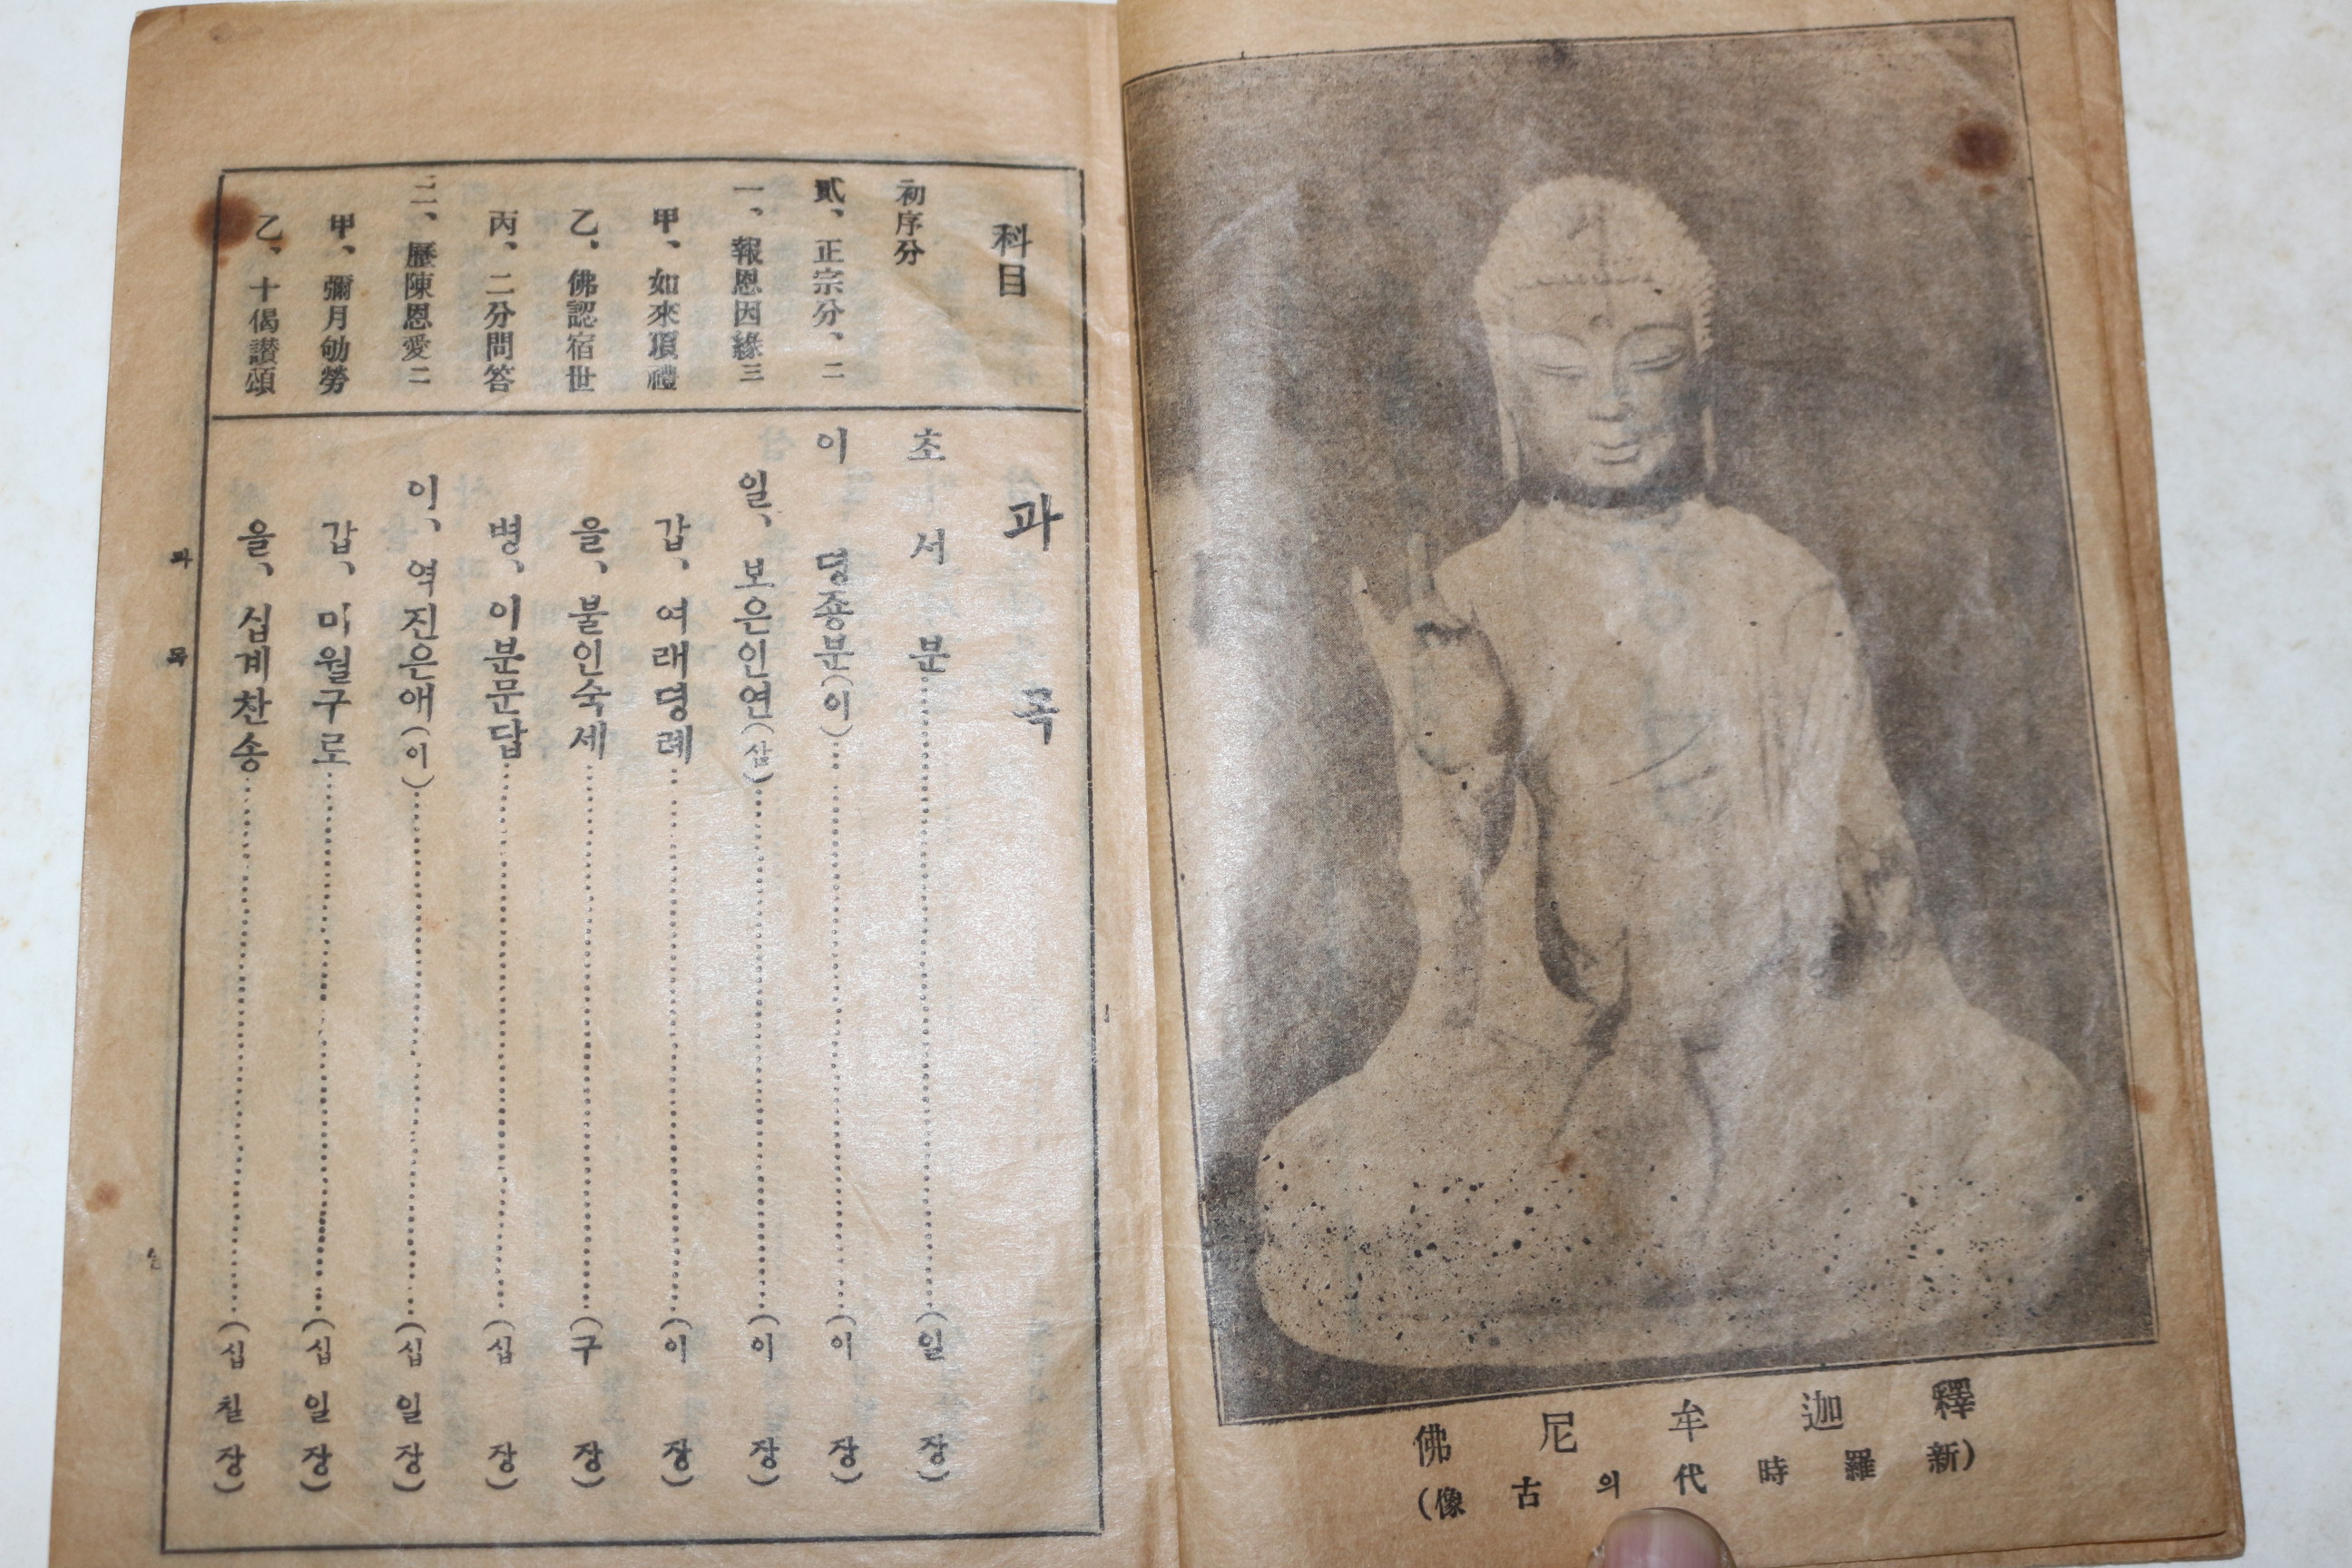 釋迦牟尼佛
(新羅時代의古像)
科目
初序分
貳、正宗分、二
一、報恩因緣三
甲、如來頂禮
乙、佛認宿世
丙、二分問答
二、歷陳恩愛二
甲、彌月劬勞
乙、十偈讃頌
과목
초서분……(일장)
이 뎡죵분(이)……(이장)
일、보은인연(삼)……(이장)
갑、여래뎡례……(이장)
을、불인숙세……(구장)
병、이분문답……(십장)
이、역진은애(이)……(십일장)
갑、미월구로……(십일장)
을、십계찬송……(십칠장)
과목